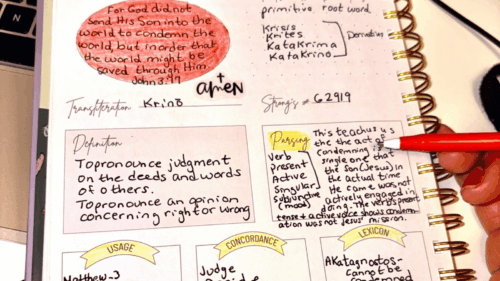 For God did not
send His Son into the
world to condemn the
world, but in order that
the world might be
saved through Him.
John 3:17
+
amen
primitive root word.
Krisis
Krites
Katakrima
Katakrino
Derivatives
Transliteration Krinō
Strong's # G2919
Definition
To pronounce judgment
on the deeds and words
of others.
To pronounce an opinion
concerning right or wrong
Parsing
Verb
Present
Active
Singular
Subjunctive
(mood)
This teaches us
the the act of
condemning
single one that
the Son (Jesus) in
the actual time
He came was not
actively engaged in
doing. The verb's present
tense + active voice shows condemn-
ation was not Jesus' mission.
USAGE
Matthew-3
CONCORDANCE
Judge
LEXICON
Akatagnostos-
cannot be
condemned